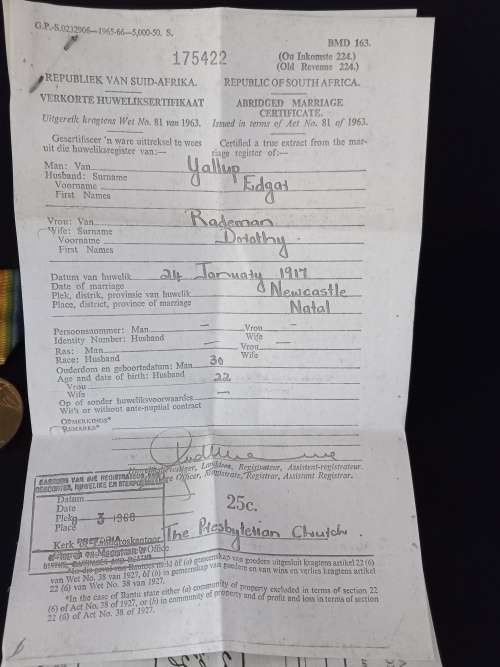 G.P.-S.0232906—1965-66—5,000-50. S.
BMD 163.
175422
(On Inkomste 224.)
(Old Revenue 224.)
REPUBLIEK VAN SUID-AFRIKA. REPUBLIC OF SOUTH AFRICA.
VERKORTE HUWELIKSERTIFIKAAT ABRIDGED MARRIAGE CERTIFICATE.
Uitgereik kragtens Wet No. 81 van 1963. Issued in terms of Act No. 81 of 1963.
Gesertifiseer 'n ware uittreksel te wees Certified a true extract from the mar-
uit die huweliksregister van:— riage register of:—
Man: Van Yallup
Husband: Surname
Voorname Edgar
First Names
Vrou: Van Rademan
Wife: Surname
Voorname Dorothy.
First Names
Datum van huwelik 24 January 1917
Date of marriage
Plek, distrik, provinsie van huwelik Newcastle
Place, district, province of marriage Natal
Persoonsnommer: Man — Vrou -
Identity Number: Husband Wife
Ras: Man — Vrou —
Race: Husband Wife
Ouderdom en geboortedatum: Man 30
Age and date of birth: Husband
Vrou 22
Wife
Op of sonder huweliksvoorwaardes —
With or without ante-nuptial contract
OPMERKINGS*
REMARKS*
Landdros, Registrateur, Assistent-registrateur.
Officer, Magistrate, Registrar, Assistant Registrar.
GEBOORTES, HUWELIKE EN STERFGEVALLE
Datum
Date
Plek
Place
3 1966
25c.
PRETORIA
Kerk of Landdroskantoor The Presbyterian Church.
Church or Magistrate's Office
BIRTHS, MARRIAGES AND DEATHS
van Wet No. 38 van 1927, óf (b) in gemeenskap van goedere en van wins en verlies kragtens artikel
22 (6) van Wet No. 38 van 1927.
*In the case of Bantu state either (a) community of property excluded in terms of section 22
(6) of Act No. 38 of 1927, or (b) in community of property and of profit and loss in terms of section
22 (6) of Act No. 38 of 1927.